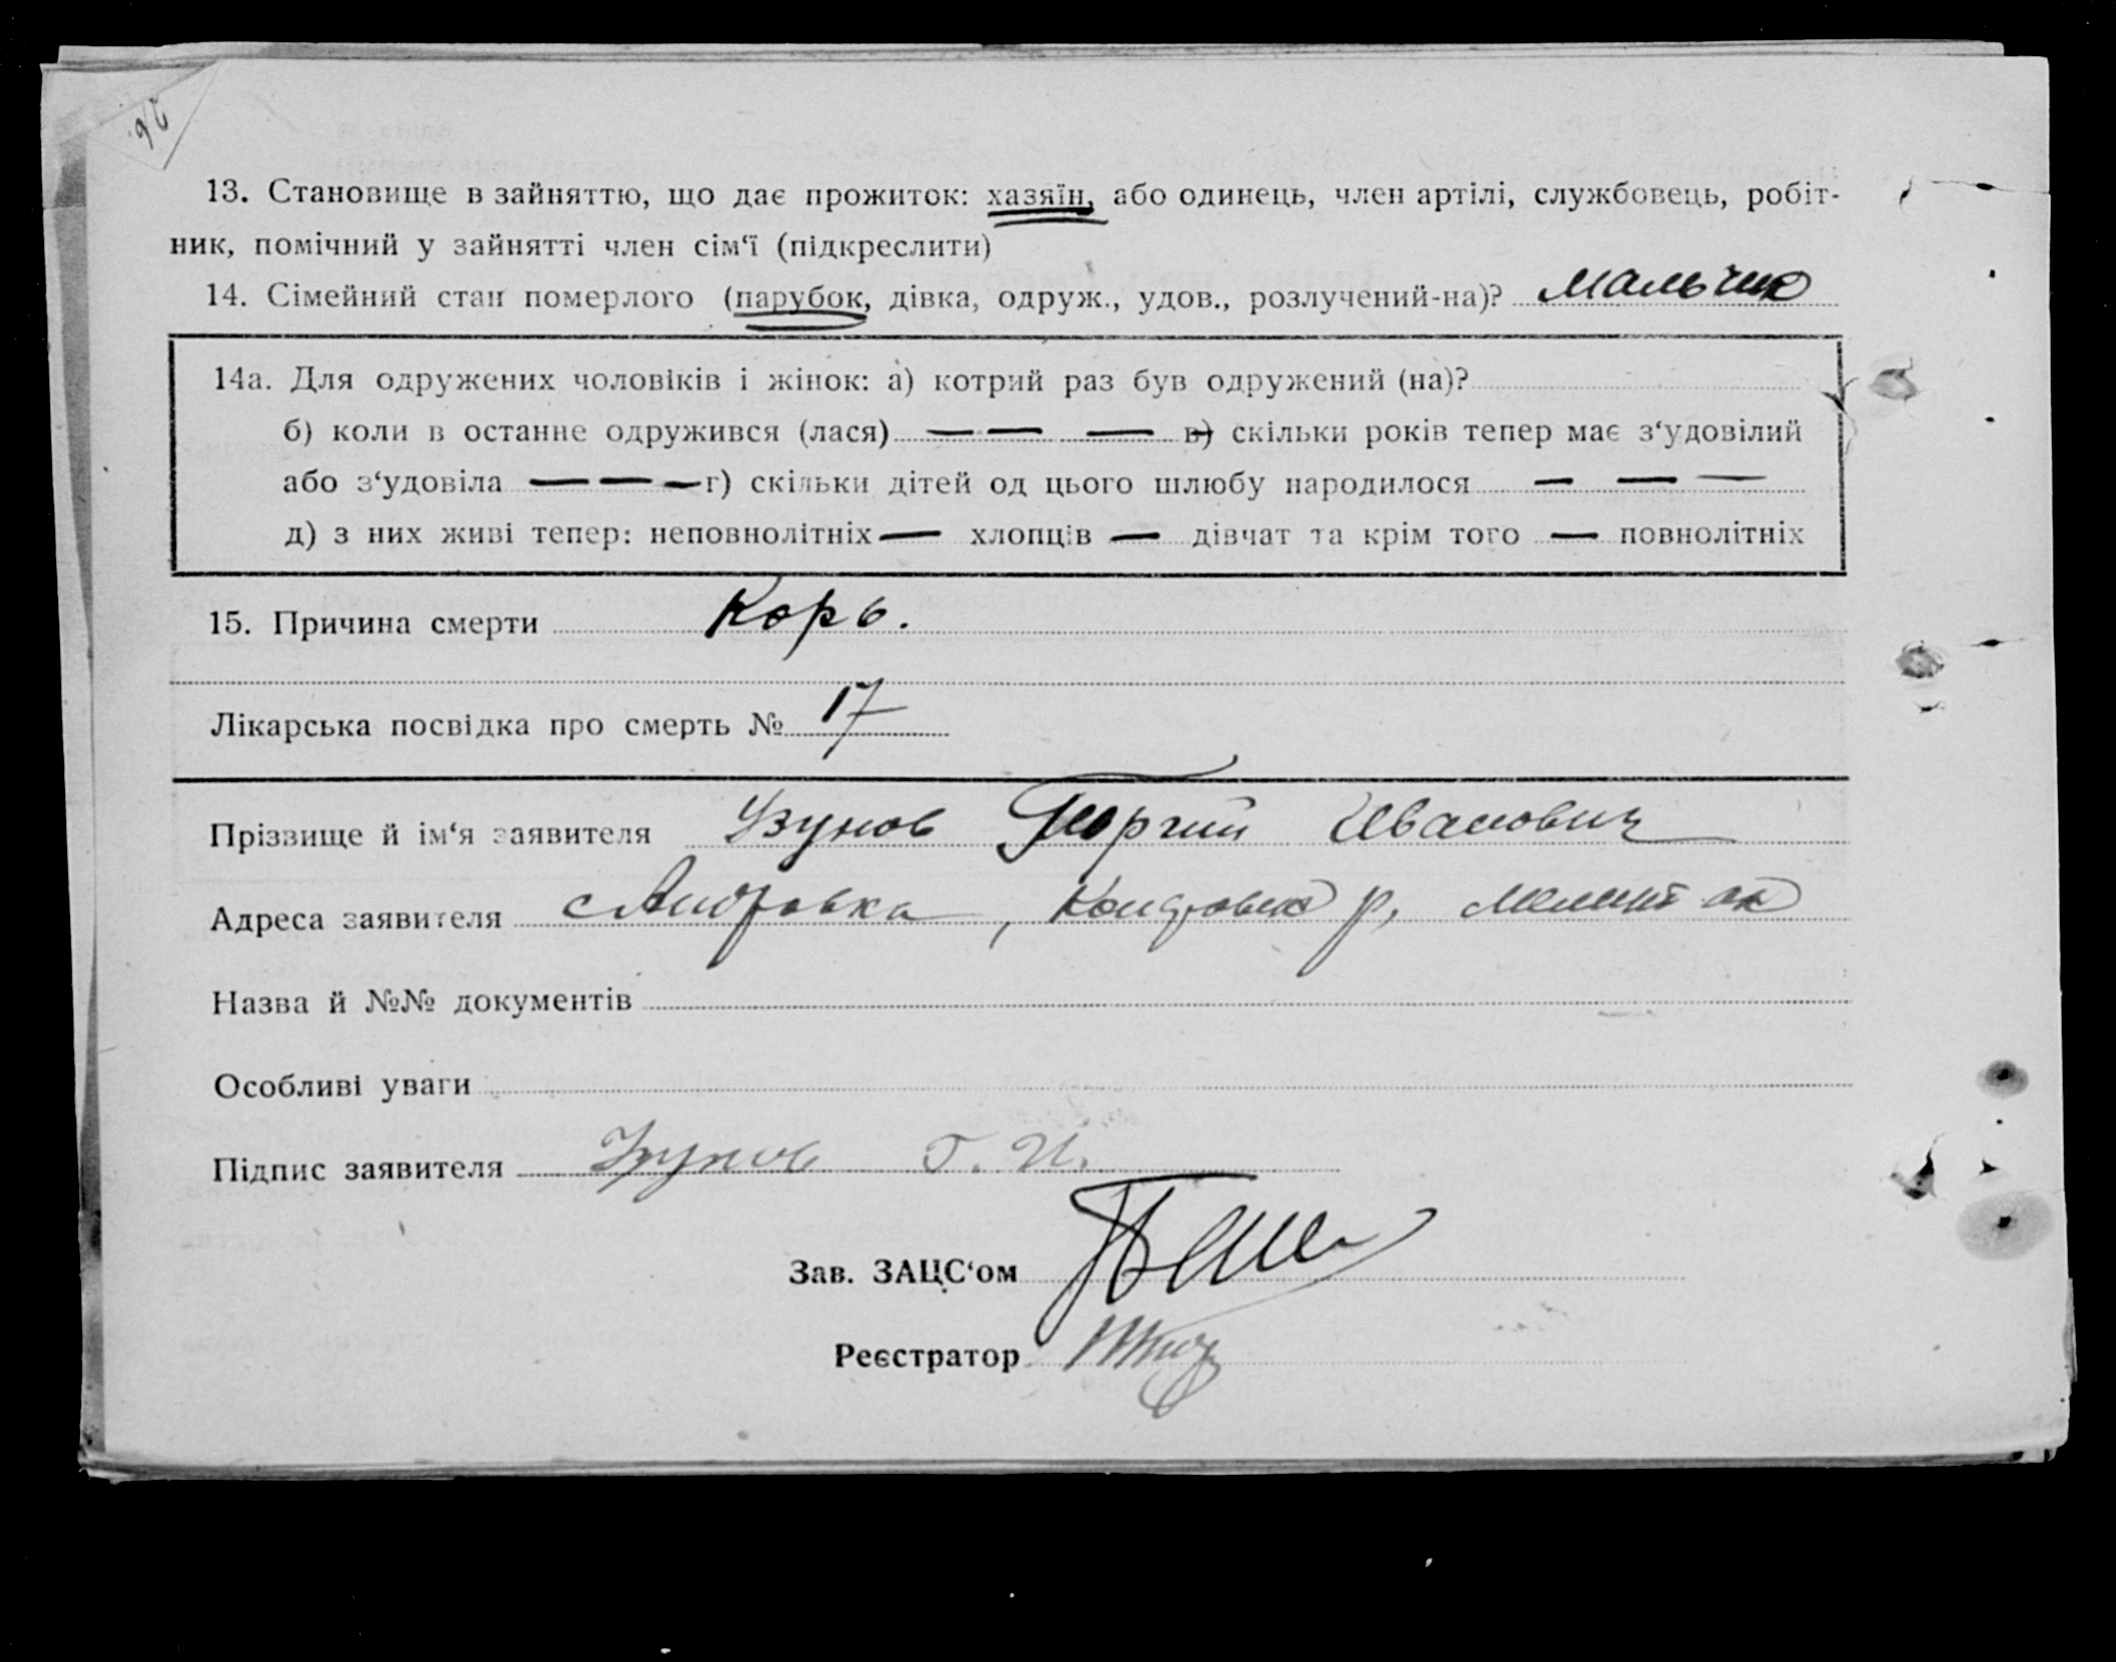 26
13. Становище в зайняттю, що дає прожиток: хазяїн, або одинець, член артілі, службовець, робіт-
ник, помічний у зайнятті член сім‘ї (підкреслити)
14. Сімейний стан померлого (парубок, дівка, одруж., удов., розлучений-на)? мальчик
14а. Для одружених чоловіків і жінок: а) котрий раз був одружений (на)?
б) коли в останнє одружився (лася) — — — в) скільки років тепер має з‘удовілий
або з‘удовіла — — — г) скільки дітей од цього шлюбу народилося — — —
д) з них живі тепер: неповнолітніх — хлопців — дівчат та крім того — повнолітніх
15. Причина смерти Корь.
Лікарська посвідка про смерть № 17
Прізвище й ім‘я заявителя Узунов Георгий Иванович
Адреса заявителя с Андровка, р,
Назва й №№ документів
Особливі уваги
Підпис заявителя Узунов Г. И.
Зав. ЗАЦС‘ом
Реєстратор